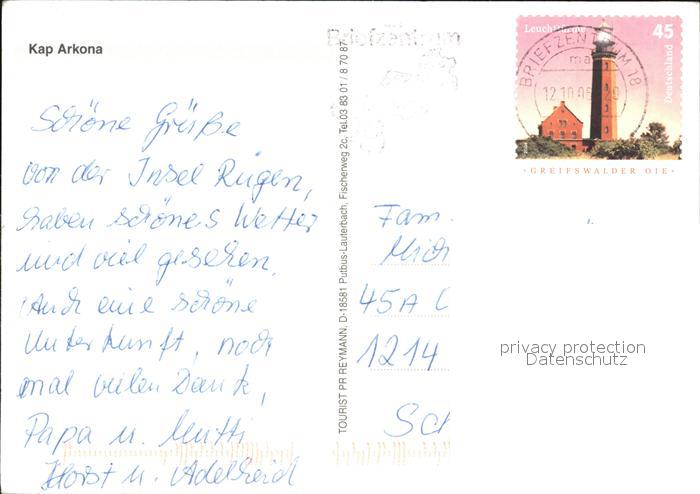 Kap Arkona
Schöne Grüße
von der Insel Rügen,
haben schönes Wetter
und viel gesehen.
Auch eine schöne
Unterkunft, noch
mal vielen Dank,
Papa u. Mutti
Horst u. Adelheid
TOURIST PR REYMANN, D-18581 Putbus-Lauterbach, Fischerweg 2c, Tel.03 83 01 / 8 70 87
Briefzentrum
Leuchttürme
45
Deutschland
BRIEFZENTRUM 18
ma
12.10.05
20
·GREIFSWALDER OIE·
Fam.
45A
1214
privacy protection
Datenschutz